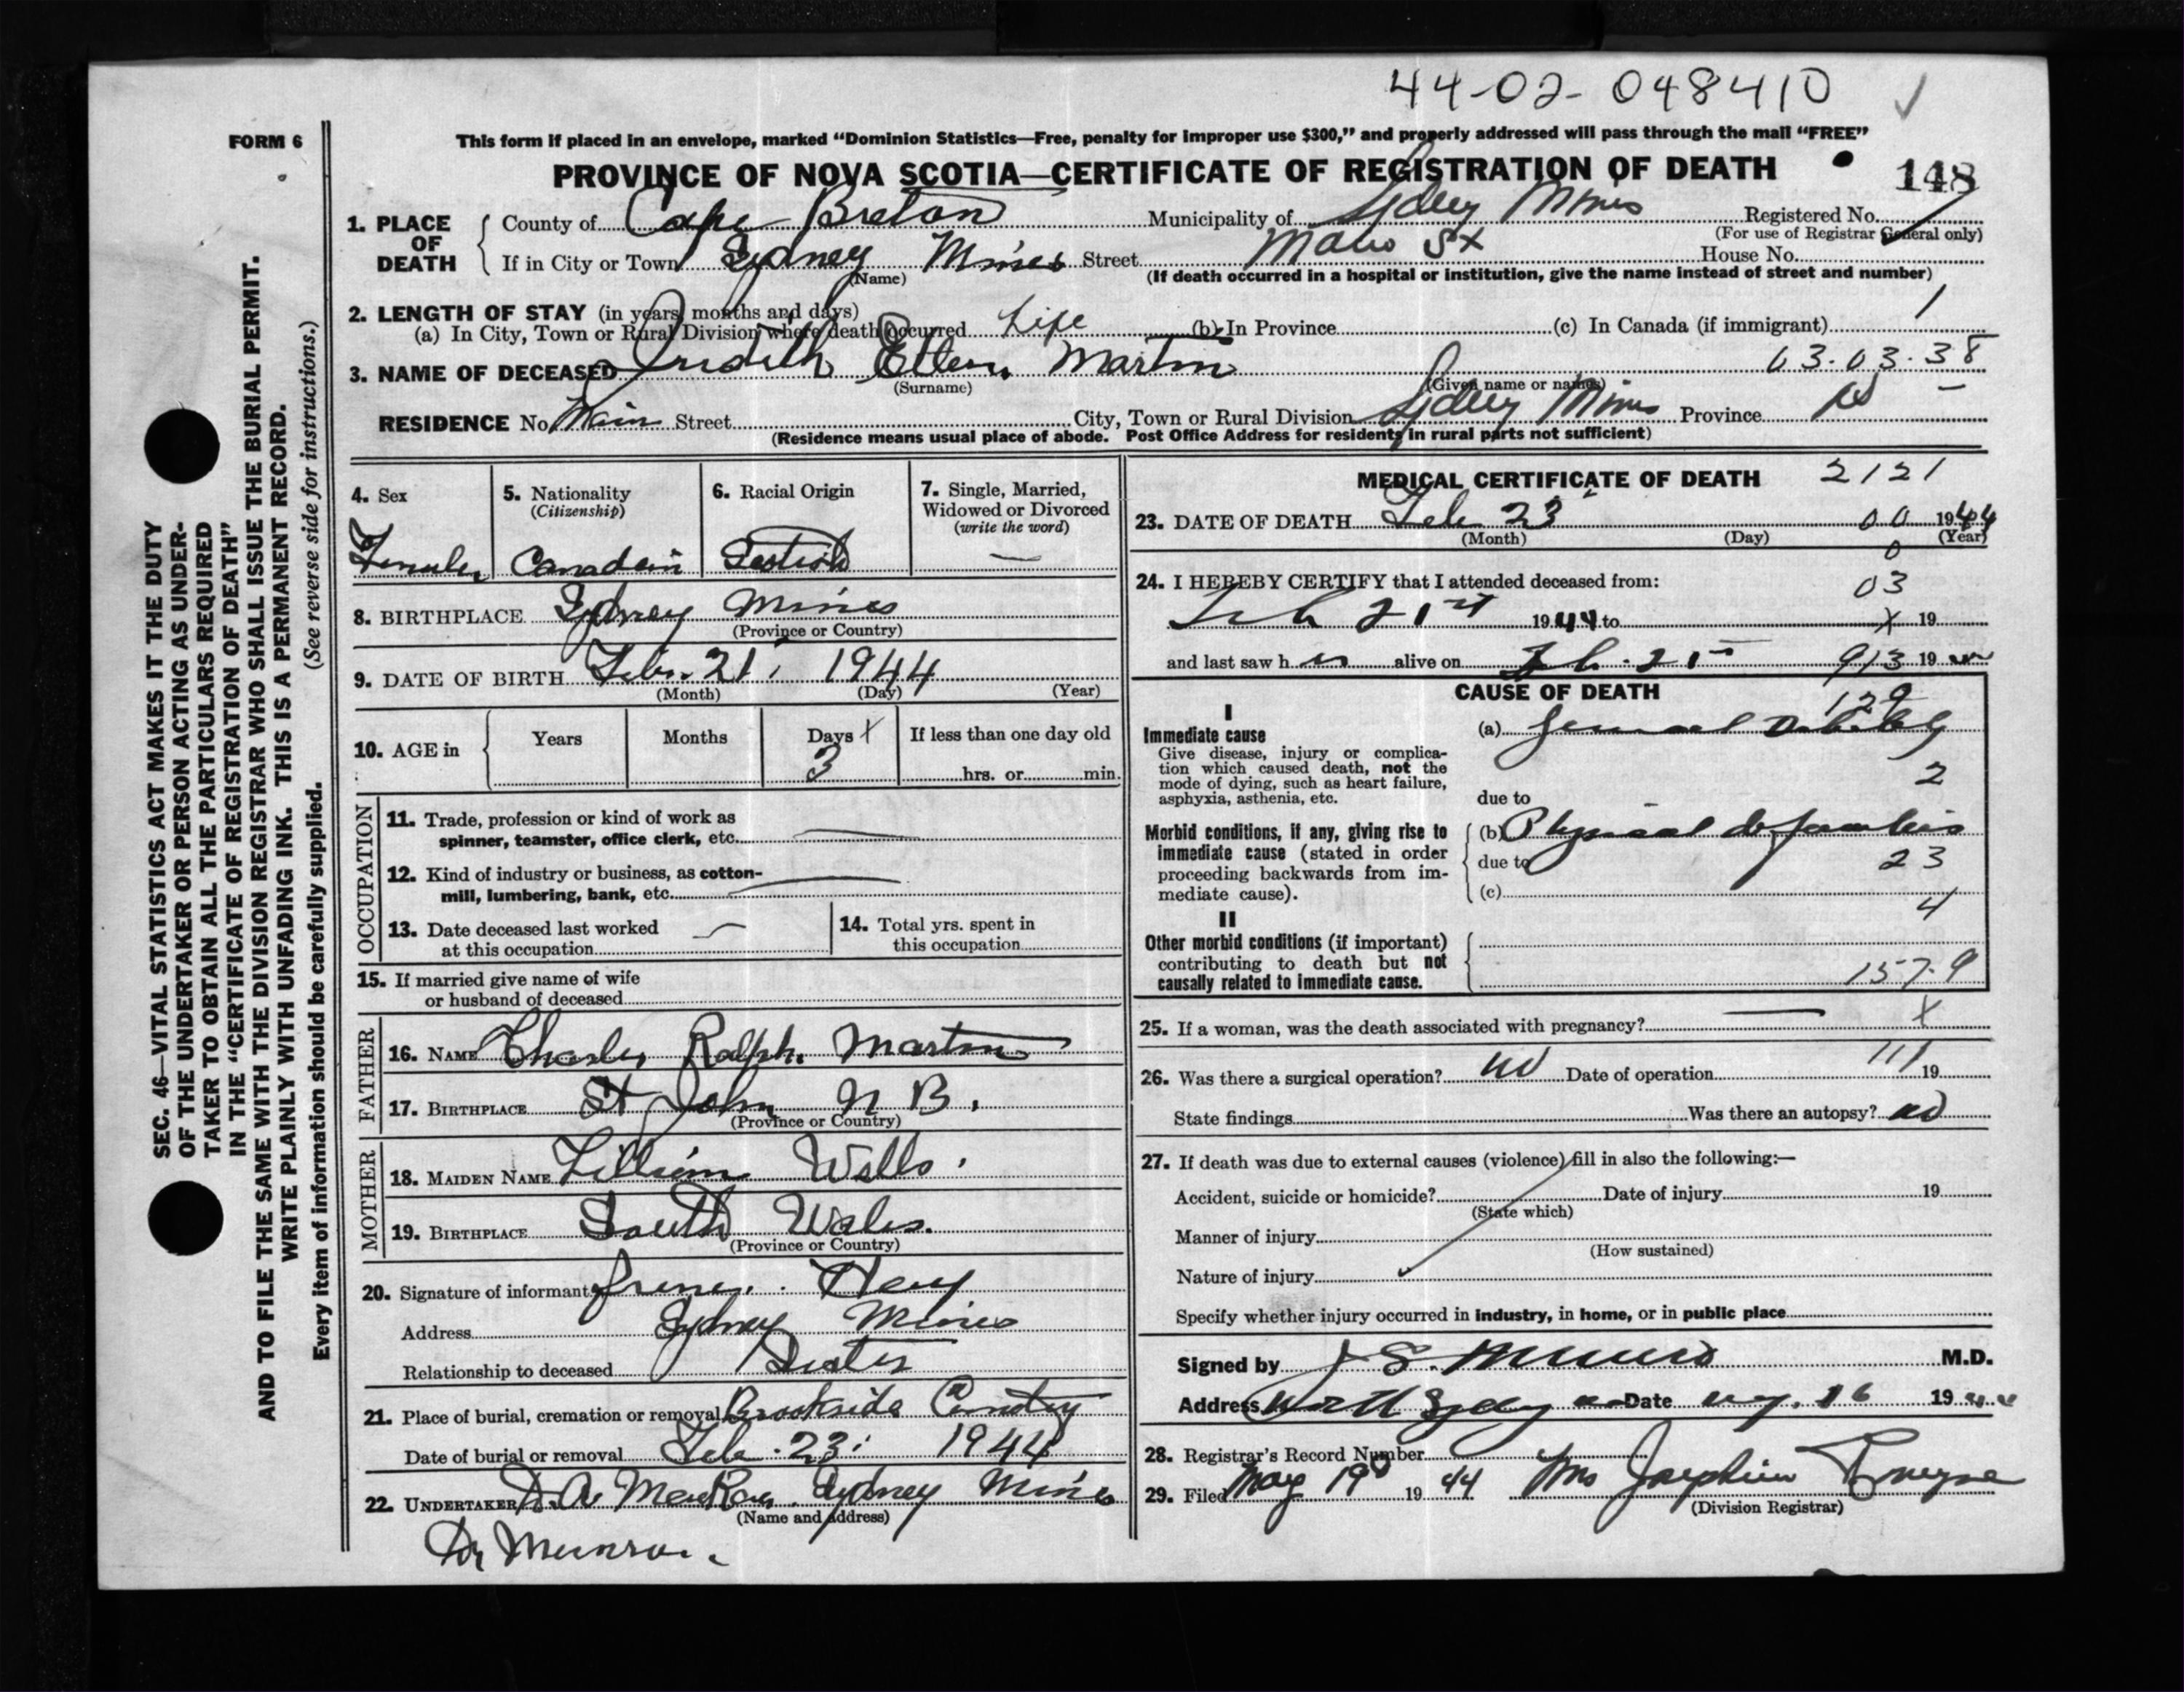 44-02-048410
FORM 6
This form if placed in an envelope, marked “Dominion Statistics—Free, penalty for improper use $300,” and properly addressed will pass through the mail “FREE”
PROVINCE OF NOVA SCOTIA—CERTIFICATE OF REGISTRATION OF DEATH 148
1. PLACE OF DEATH
County of Cape Breton Municipality of Sydney Mines Registered No.
(For use of Registrar General only)
If in City or Town Sydney Mines Street Main St House No.
(Name) (If death occurred in a hospital or institution, give the name instead of street and number)
2. LENGTH OF STAY (in years, months and days)
(a) In City, Town or Rural Division where death occurred Life (b) In Province (c) In Canada (if immigrant) 1
3. NAME OF DECEASED Judith Ellen Martin 03.03.38
(Surname) (Given name or names)
RESIDENCE No. Main Street City, Town or Rural Division Sydney Mines Province
(Residence means usual place of abode. Post Office Address for residents in rural parts not sufficient)
4. Sex
Female
5. Nationality
(Citizenship)
Canadein
6. Racial Origin
7. Single, Married,
Widowed or Divorced
(write the word)
—
8. BIRTHPLACE Sydney Mines
(Province or Country)
9. DATE OF BIRTH Feb. 21, 1944
(Month) (Day) (Year)
10. AGE in Years Months Days If less than one day old
3 hrs. or min.
OCCUPATION
11. Trade, profession or kind of work as
spinner, teamster, office clerk, etc.
12. Kind of industry or business, as cotton-
mill, lumbering, bank, etc.
13. Date deceased last worked
at this occupation
14. Total yrs. spent in
this occupation
15. If married give name of wife
or husband of deceased
FATHER
16. NAME Charles Ralph Martin
17. BIRTHPLACE St John N B.
(Province or Country)
MOTHER
18. MAIDEN NAME Lillian Wells
19. BIRTHPLACE South Wales.
(Province or Country)
20. Signature of informant
Address Sydney Mines
Relationship to deceased Sister
21. Place of burial, cremation or removal Brookside Cemetery
Date of burial or removal Feb. 23. 1944
22. UNDERTAKER Sydney Mines
(Name and address)
Dr Munro.
MEDICAL CERTIFICATE OF DEATH 2121
23. DATE OF DEATH Feb 23 00 1944
(Month) (Day) (Year)
0
24. I HEREBY CERTIFY that I attended deceased from: 03
Feb 21st 1944 to X 19
and last saw h er alive on Feb. 21st 913 19 44
CAUSE OF DEATH
129
I
Immediate cause
Give disease, injury or complica-
tion which caused death, not the
mode of dying, such as heart failure,
asphyxia, asthenia, etc.
(a) General Debility
2
due to
Morbid conditions, if any, giving rise to
immediate cause (stated in order
proceeding backwards from im-
mediate cause).
(b) Physical deformities
due to 23
(c)
4
II
Other morbid conditions (if important)
contributing to death but not
causally related to immediate cause.
157.9
25. If a woman, was the death associated with pregnancy? — X
26. Was there a surgical operation? no Date of operation 111 19
State findings Was there an autopsy? no
27. If death was due to external causes (violence) fill in also the following:—
Accident, suicide or homicide? Date of injury 19
(State which)
Manner of injury
(How sustained)
Nature of injury
Specify whether injury occurred in industry, in home, or in public place
Signed by J S. Munro M.D.
Address North Sydney Date 16 1944
28. Registrar’s Record Number
29. Filed May 19 1944 Mrs Josephine
(Division Registrar)
SEC. 46—VITAL STATISTICS ACT MAKES IT THE DUTY
OF THE UNDERTAKER OR PERSON ACTING AS UNDER-
TAKER TO OBTAIN ALL THE PARTICULARS REQUIRED
IN THE “CERTIFICATE OF REGISTRATION OF DEATH”
AND TO FILE THE SAME WITH THE DIVISION REGISTRAR WHO SHALL ISSUE THE BURIAL PERMIT.
WRITE PLAINLY WITH UNFADING INK. THIS IS A PERMANENT RECORD.
Every item of information should be carefully supplied. (See reverse side for instructions.)